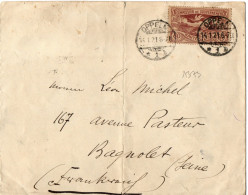 OPPELN
14.1.21.6-7
* 1 *
OPPELN
14.1.21.6-7
* 1 *
Monsieur Léon Michel
167 avenue Pasteur
Bagnolet (Seine)
(Frankreich)